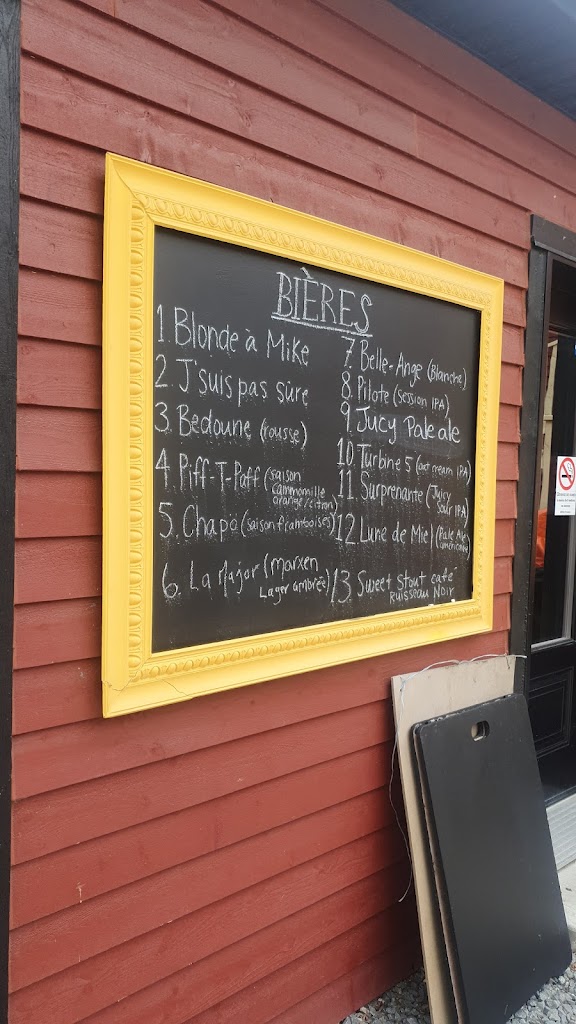 BIÈRES
1. Blonde à Mike
2. J'suis pas sûre
3. Bedoune (rousse)
4. Piff-T-Paff (saison
cammomille
orange/citron)
5. Chapo (saison framboises)
6. La Major (Marxen
Lager ambrée)
7. Belle-Ange (Blanche)
8. Pilote (Session IPA)
9. Jucy Pale ale
10. Turbine 5 (oat cream IPA)
11. Surprenante (Juicy
Sour IPA)
12 Lune de Miel (Pale Ale
américaine)
13 Sweet Stout café
Ruisseau Noir